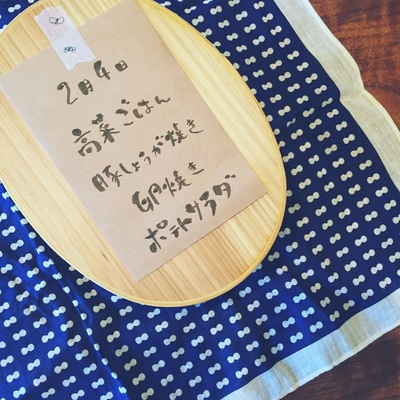 2月4日
高菜ごはん
豚しょうが焼き
卵焼き
ポテトサラダ